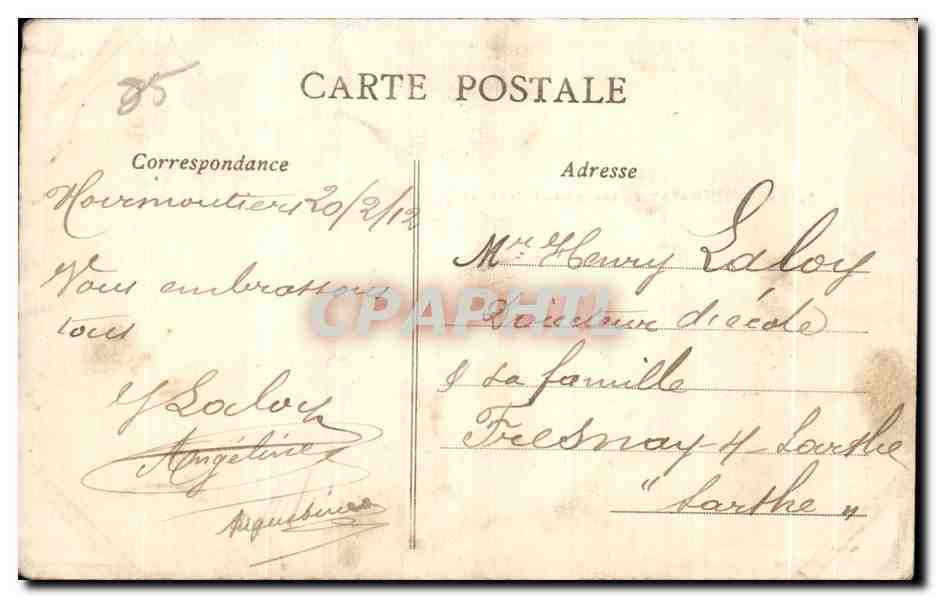 85
CARTE POSTALE
Correspondance
Noirmoutiers 20/2/12
Vous embrassons
tous
Laloy
Angéline
Augustine
Adresse
Mr Henry Laloy
Directeur d'école
& sa famille
Fresnay-s/-Sarthe
"Sarthe"
CPAPHIL